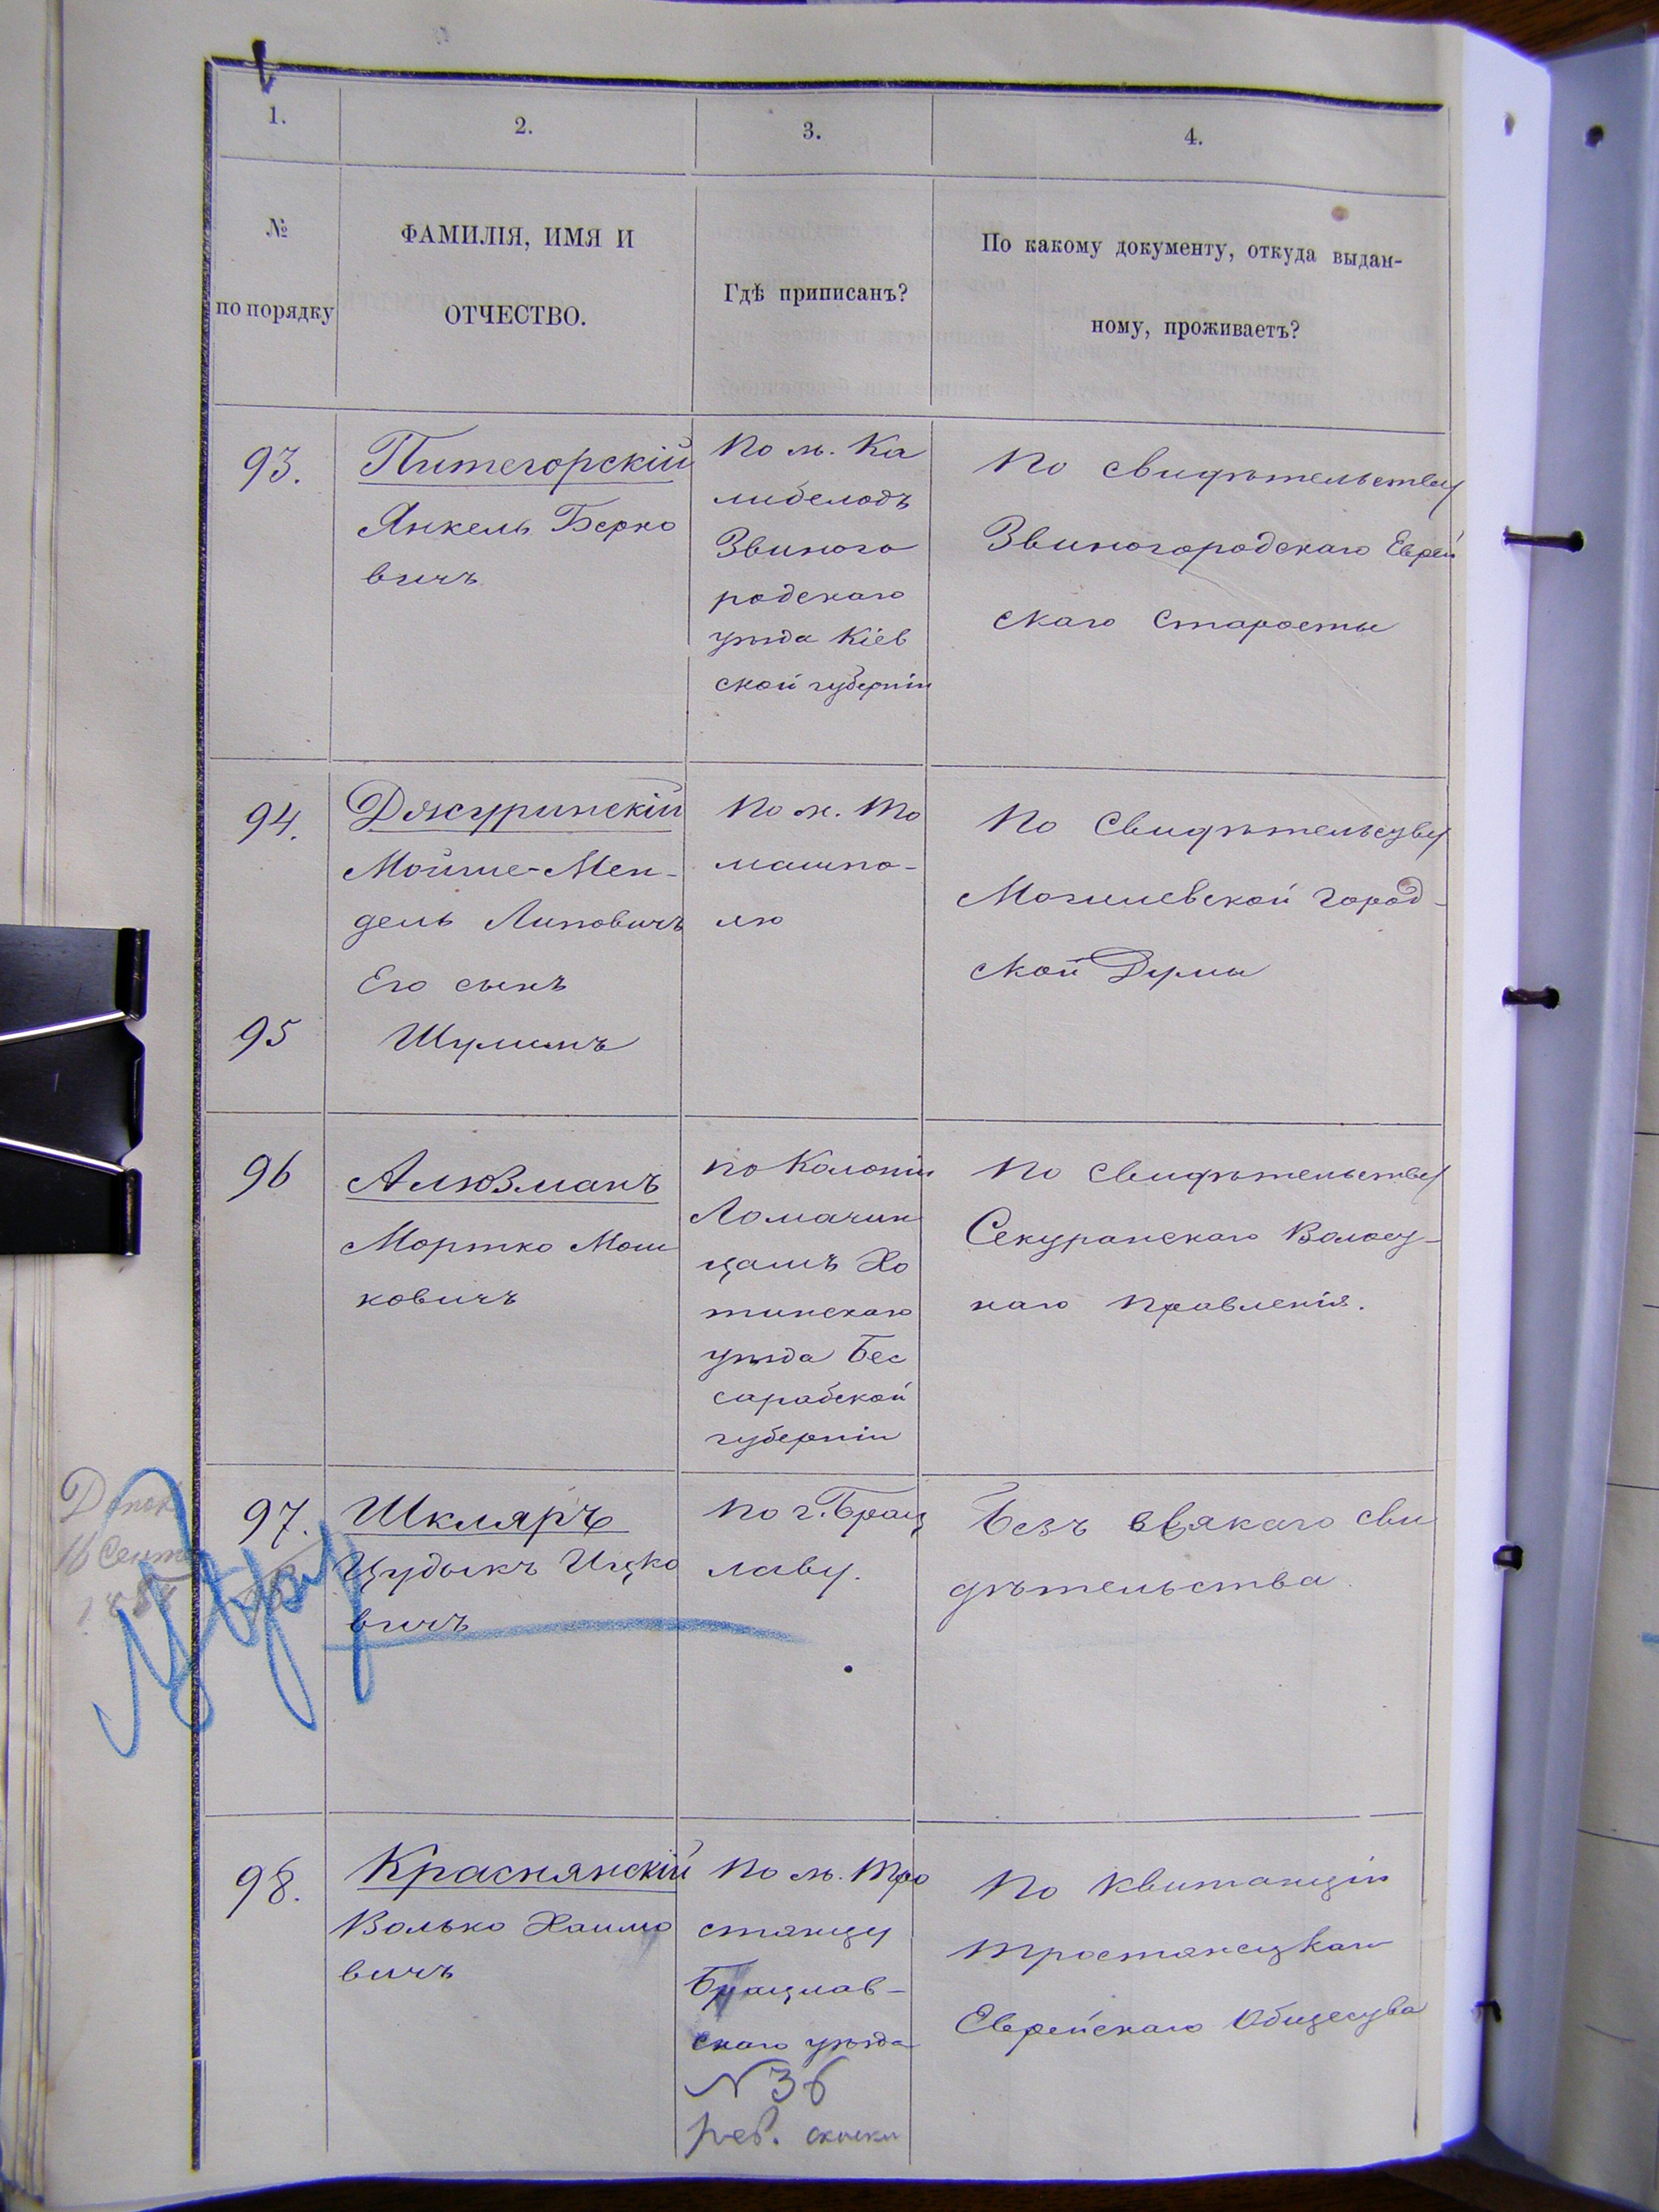 1.
2.
3.
4.
№
по порядку
ФАМИЛІЯ, ИМЯ И
ОТЧЕСТВО.
Гдѣ приписанъ?
По какому документу, откуда выдан-
ному, проживаетъ?
93.
Питегорскій
Янкель Берко
вичъ
По м. Ка
либелодъ
Звиного
родскаго
уѣзда Кіев
ской губерніи
По свидѣтельству
Звиногородскаго Еврей
скаго Старосты
94.
Джуринскій
Мойше-Мен-
дель Липовичъ
Его сынъ
95
Шулимъ
По м. То
машпо-
лю
По Свидѣтельству
Могилевской город-
ской Думы
96
Алюзманъ
Мортко Мош
ковичъ
по Колоніи
Ломачин
цамъ Хо
тинскаго
уѣзда Бес
сарабской
губерніи
По Свидѣтельству
Секуранскаго Волост-
наго Правленія.
97.
Шкляръ
Цудыкъ Ицко
вичъ
По г. Брац
лаву.
Безъ всякаго сви
дѣтельства
16 Сент
98.
Краснянскій
Волько Хаимо
вичъ
По м. Тро
стянцу
Брацлав-
скаго уѣзда
N 36
рев. сказки
По Квитанціи
Тростянецкаго
Еврейскаго Общества